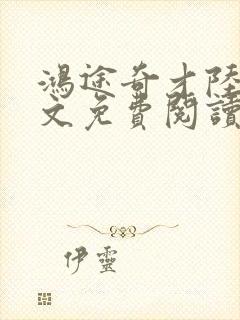 鴻途奇才陸
文免費閱讀
伊靈